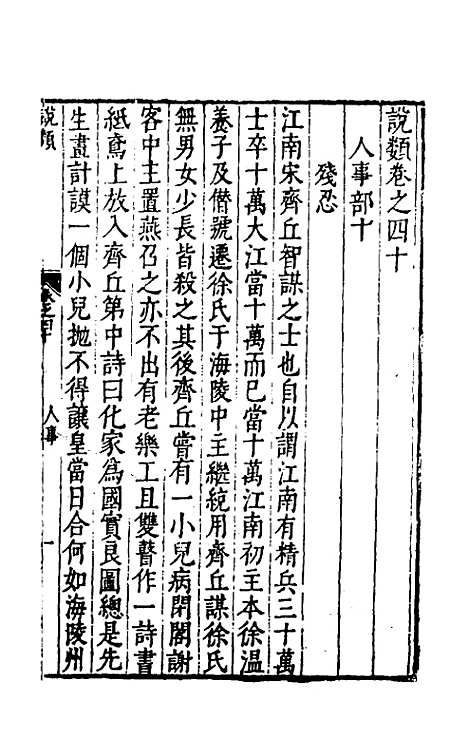 說類卷之四十
人事部十
殘忍
江南宋齊丘智謀之士也自以謂江南有精兵三十萬
士卒十萬大江當十萬而已當十萬江南初主本徐溫
養子及僣號遷徐氏于海陵中主繼統用齊丘謀徐氏
無男女少長皆殺之其後齊丘嘗有一小兒病閉閣謝
客中主置燕召之亦不出有老樂工且雙瞽作一詩書
紙鳶上放入齊丘第中詩曰化家爲國實良圖總是先
生畫計謨一個小兒拋不得讓皇當日合何如海陵州
說類
卷之四十
人事
一